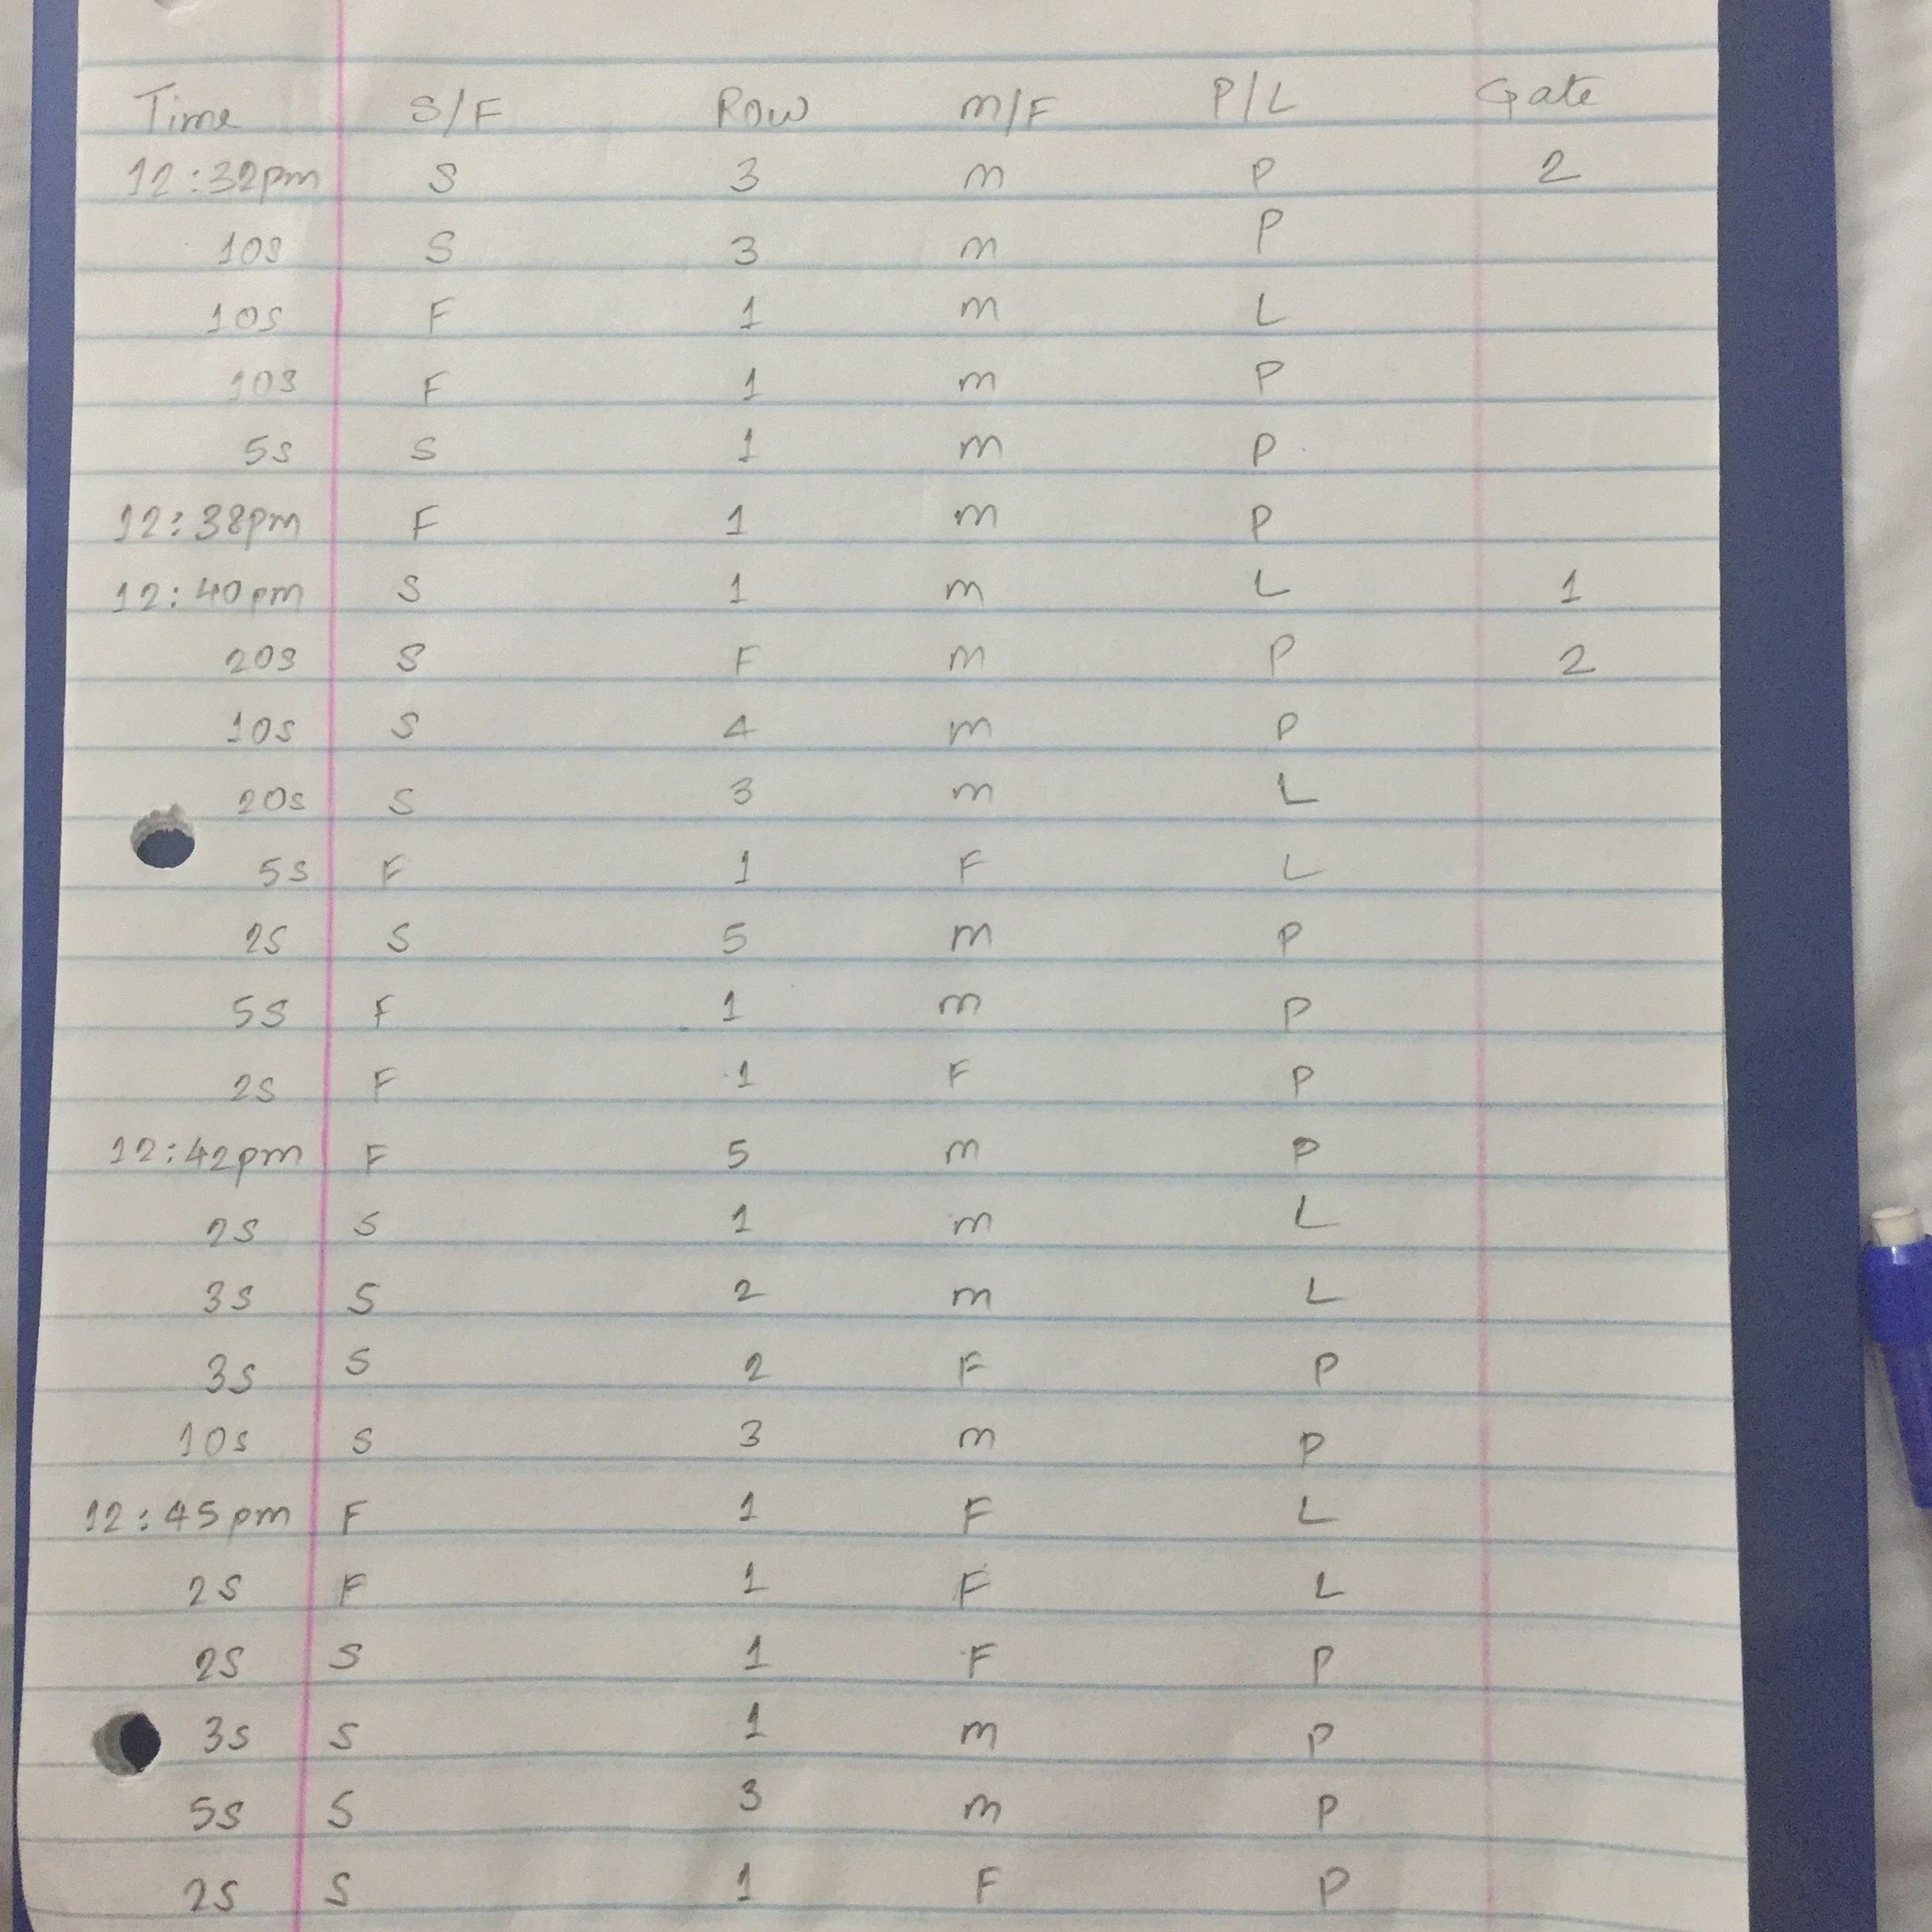 Time S/F Row m/F P/L Gate
12:32pm S 3 m P 2
10s S 3 m P
10s F 1 m L
10s F 1 m P
5s S 1 m P
12:38pm F 1 m P
12:40pm S 1 m L 1
20s S F m P 2
10s S 4 m P
20s S 3 m L
5s F 1 F L
2s S 5 m P
5s F 1 m P
2s F 1 F P
12:42pm F 5 m P
2s S 1 m L
3s S 2 m L
3s S 2 F P
10s S 3 m P
12:45pm F 1 F L
2s F 1 F L
2s S 1 F P
3s S 1 m P
5s S 3 m P
2s S 1 F P